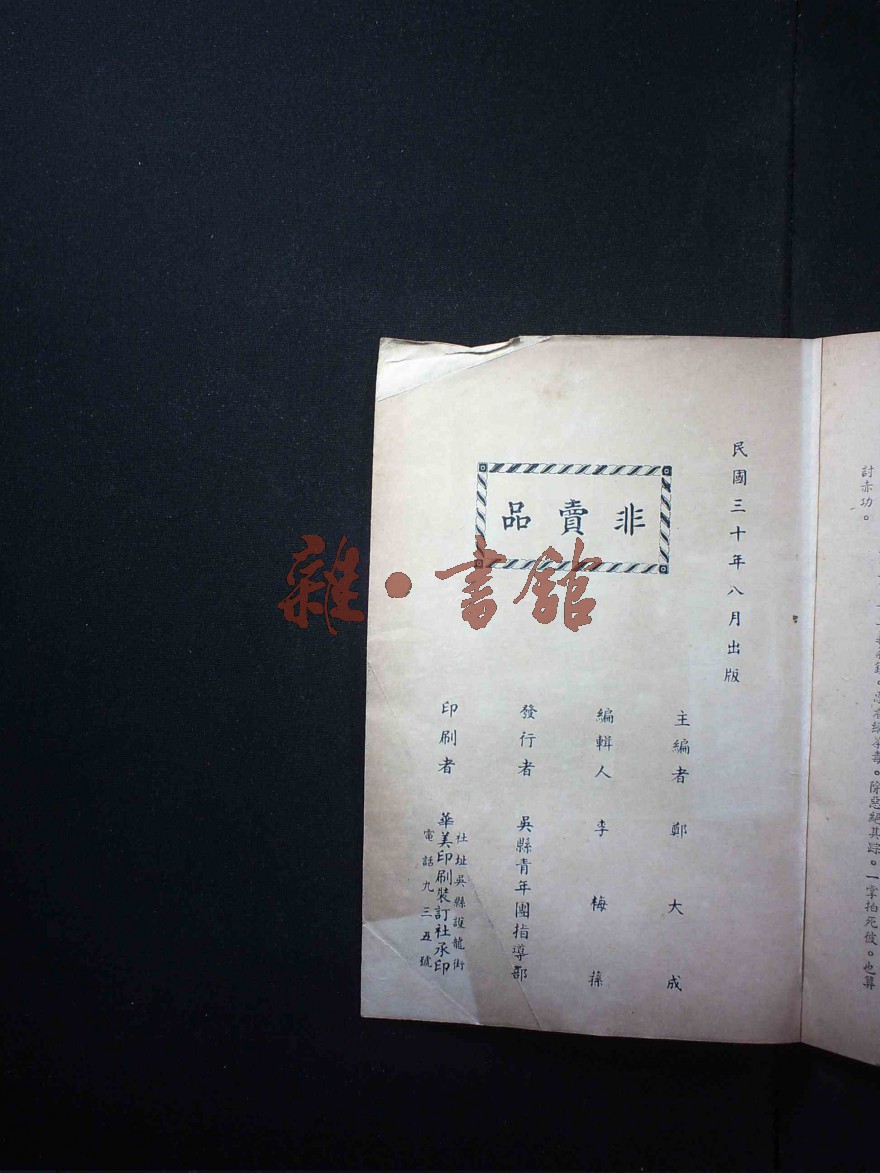 討赤功。
除惡絕其踪。一掌拍死佊。也算
民國三十年八月出版
非賣品
主編者 鄭大成
編輯人 李梅蓀
發行者 吳縣青年團指導部
印刷者 華美印刷裝訂社承印
社址吳縣護龍街
電話九三五號
雜·書館